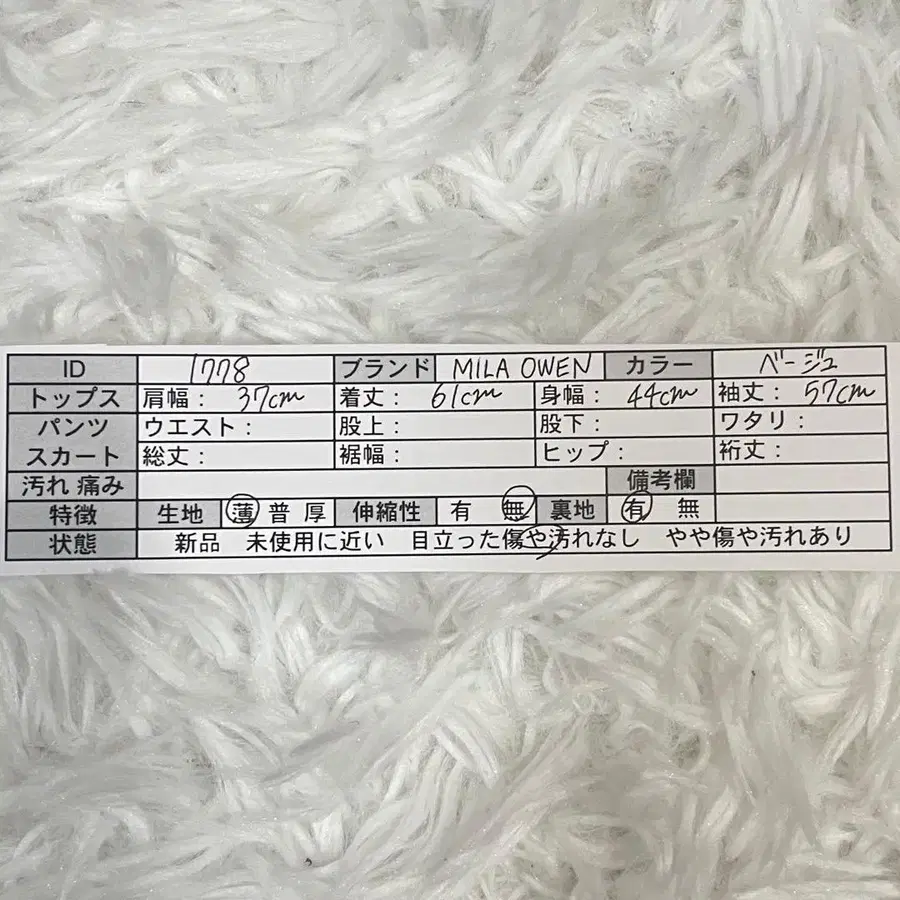 ID 1778 ブランド MILA OWEN カラー ベージュ
トップス 肩幅： 37cm 着丈： 61cm 身幅： 44cm 袖丈： 57cm
パンツ ウエスト： 股上： 股下： ワタリ：
スカート 総丈： 裾幅： ヒップ： 裄丈：
汚れ 痛み 備考欄
特徴 生地 薄 普 厚 伸縮性 有 無 裏地 有 無
状態 新品 未使用に近い 目立った傷や汚れなし やや傷や汚れあり